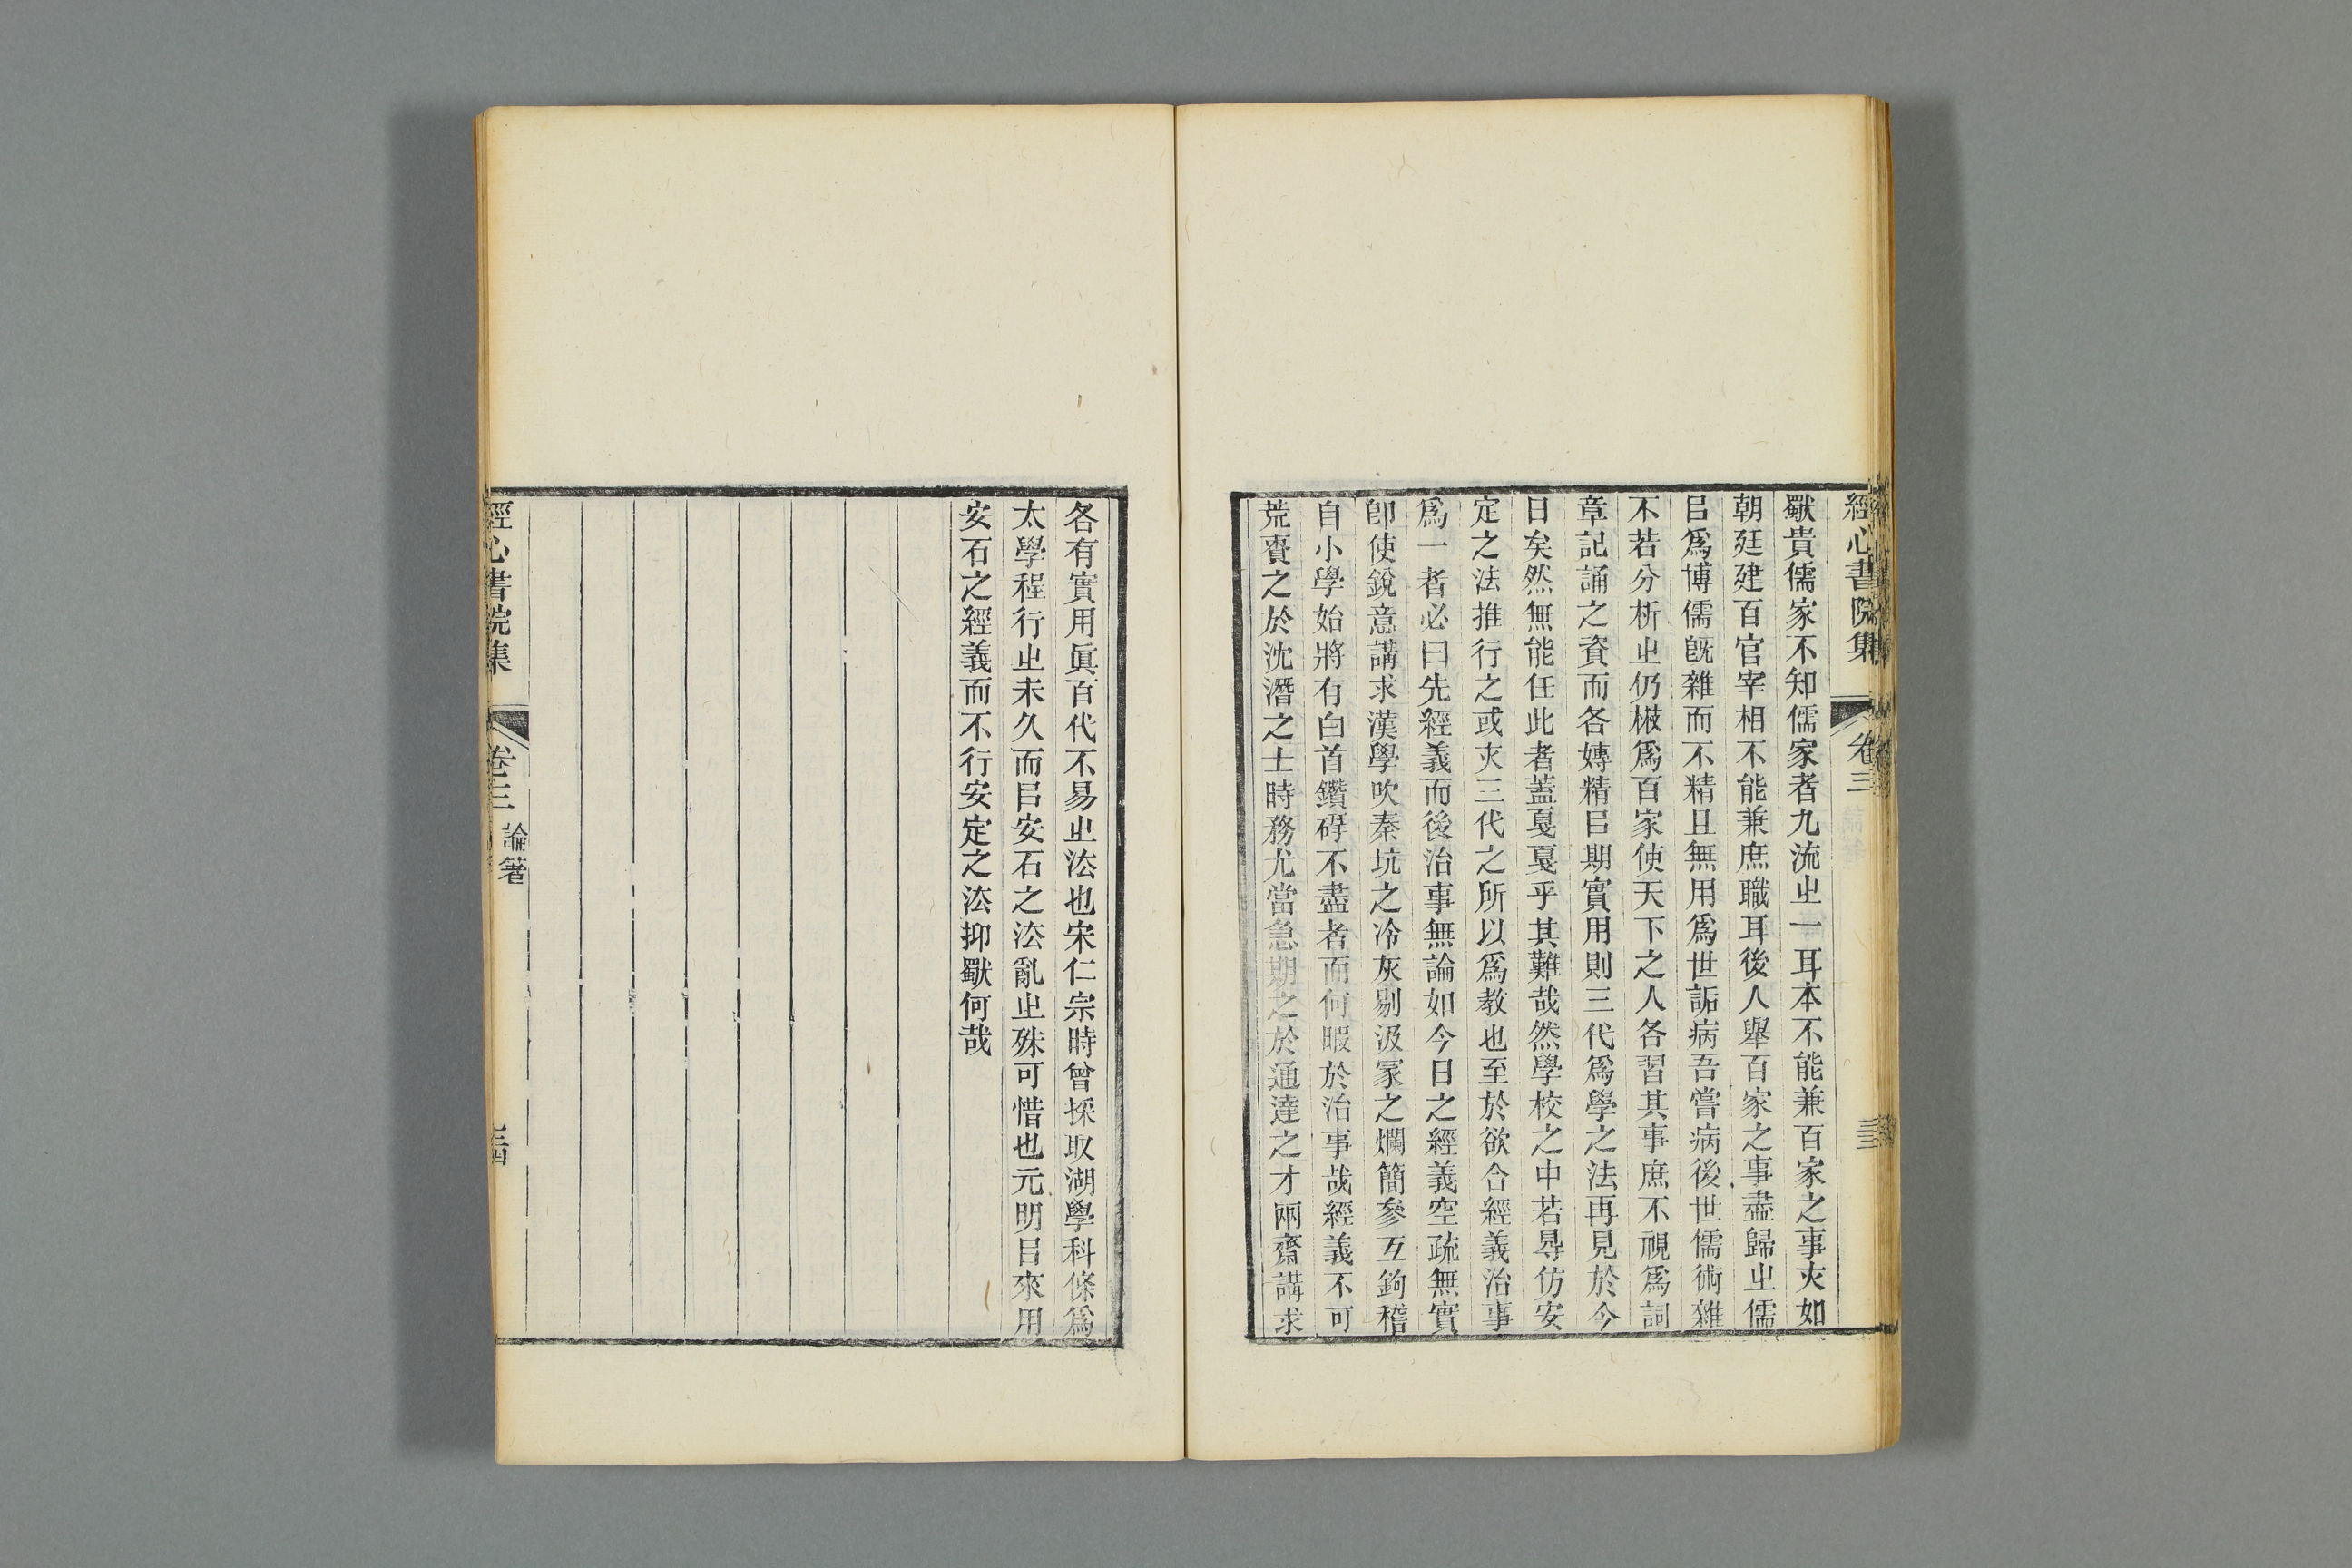 經心書院集 卷三
獸貴儒家不知儒家者九流㞢一耳本不能兼百家之事夫如
朝廷建百官宰相不能兼庶職耳後人舉百家之事盡歸㞢儒
㠯爲博儒既雜而不精且無用爲世詬病吾嘗病後世儒術雜
不若分析㞢仍㯇爲百家使天下之人各習其事庶不視爲詞
章記誦之資而各嫥精㠯期實用則三代爲學之法再見於今
日矣然無能任此者蓋戛戛乎其難哉然學校之中若㝵仿安
定之法推行之或夾三代之所以爲教也至於欲合經義治事
爲一者必曰先經義而後治事無論如今日之經義空疏無實
卽使銳意講求漢學吹秦坑之冷灰剔汲冢之爛簡參互鉤稽
自小學始將有白首鑽硏不盡者而何暇於治事哉經義不可
荒賚之於沈潛之士時務尤當急期之於通達之才兩齋講求
各有實用眞百代不易㞢法也宋仁宗時曾採取湖學科條爲
太學程行㞢未久而㠯安石之法亂㞢殊可惜也元明㠯來用
安石之經義而不行安定之法抑獸何哉
經心書院集 卷三 論箸